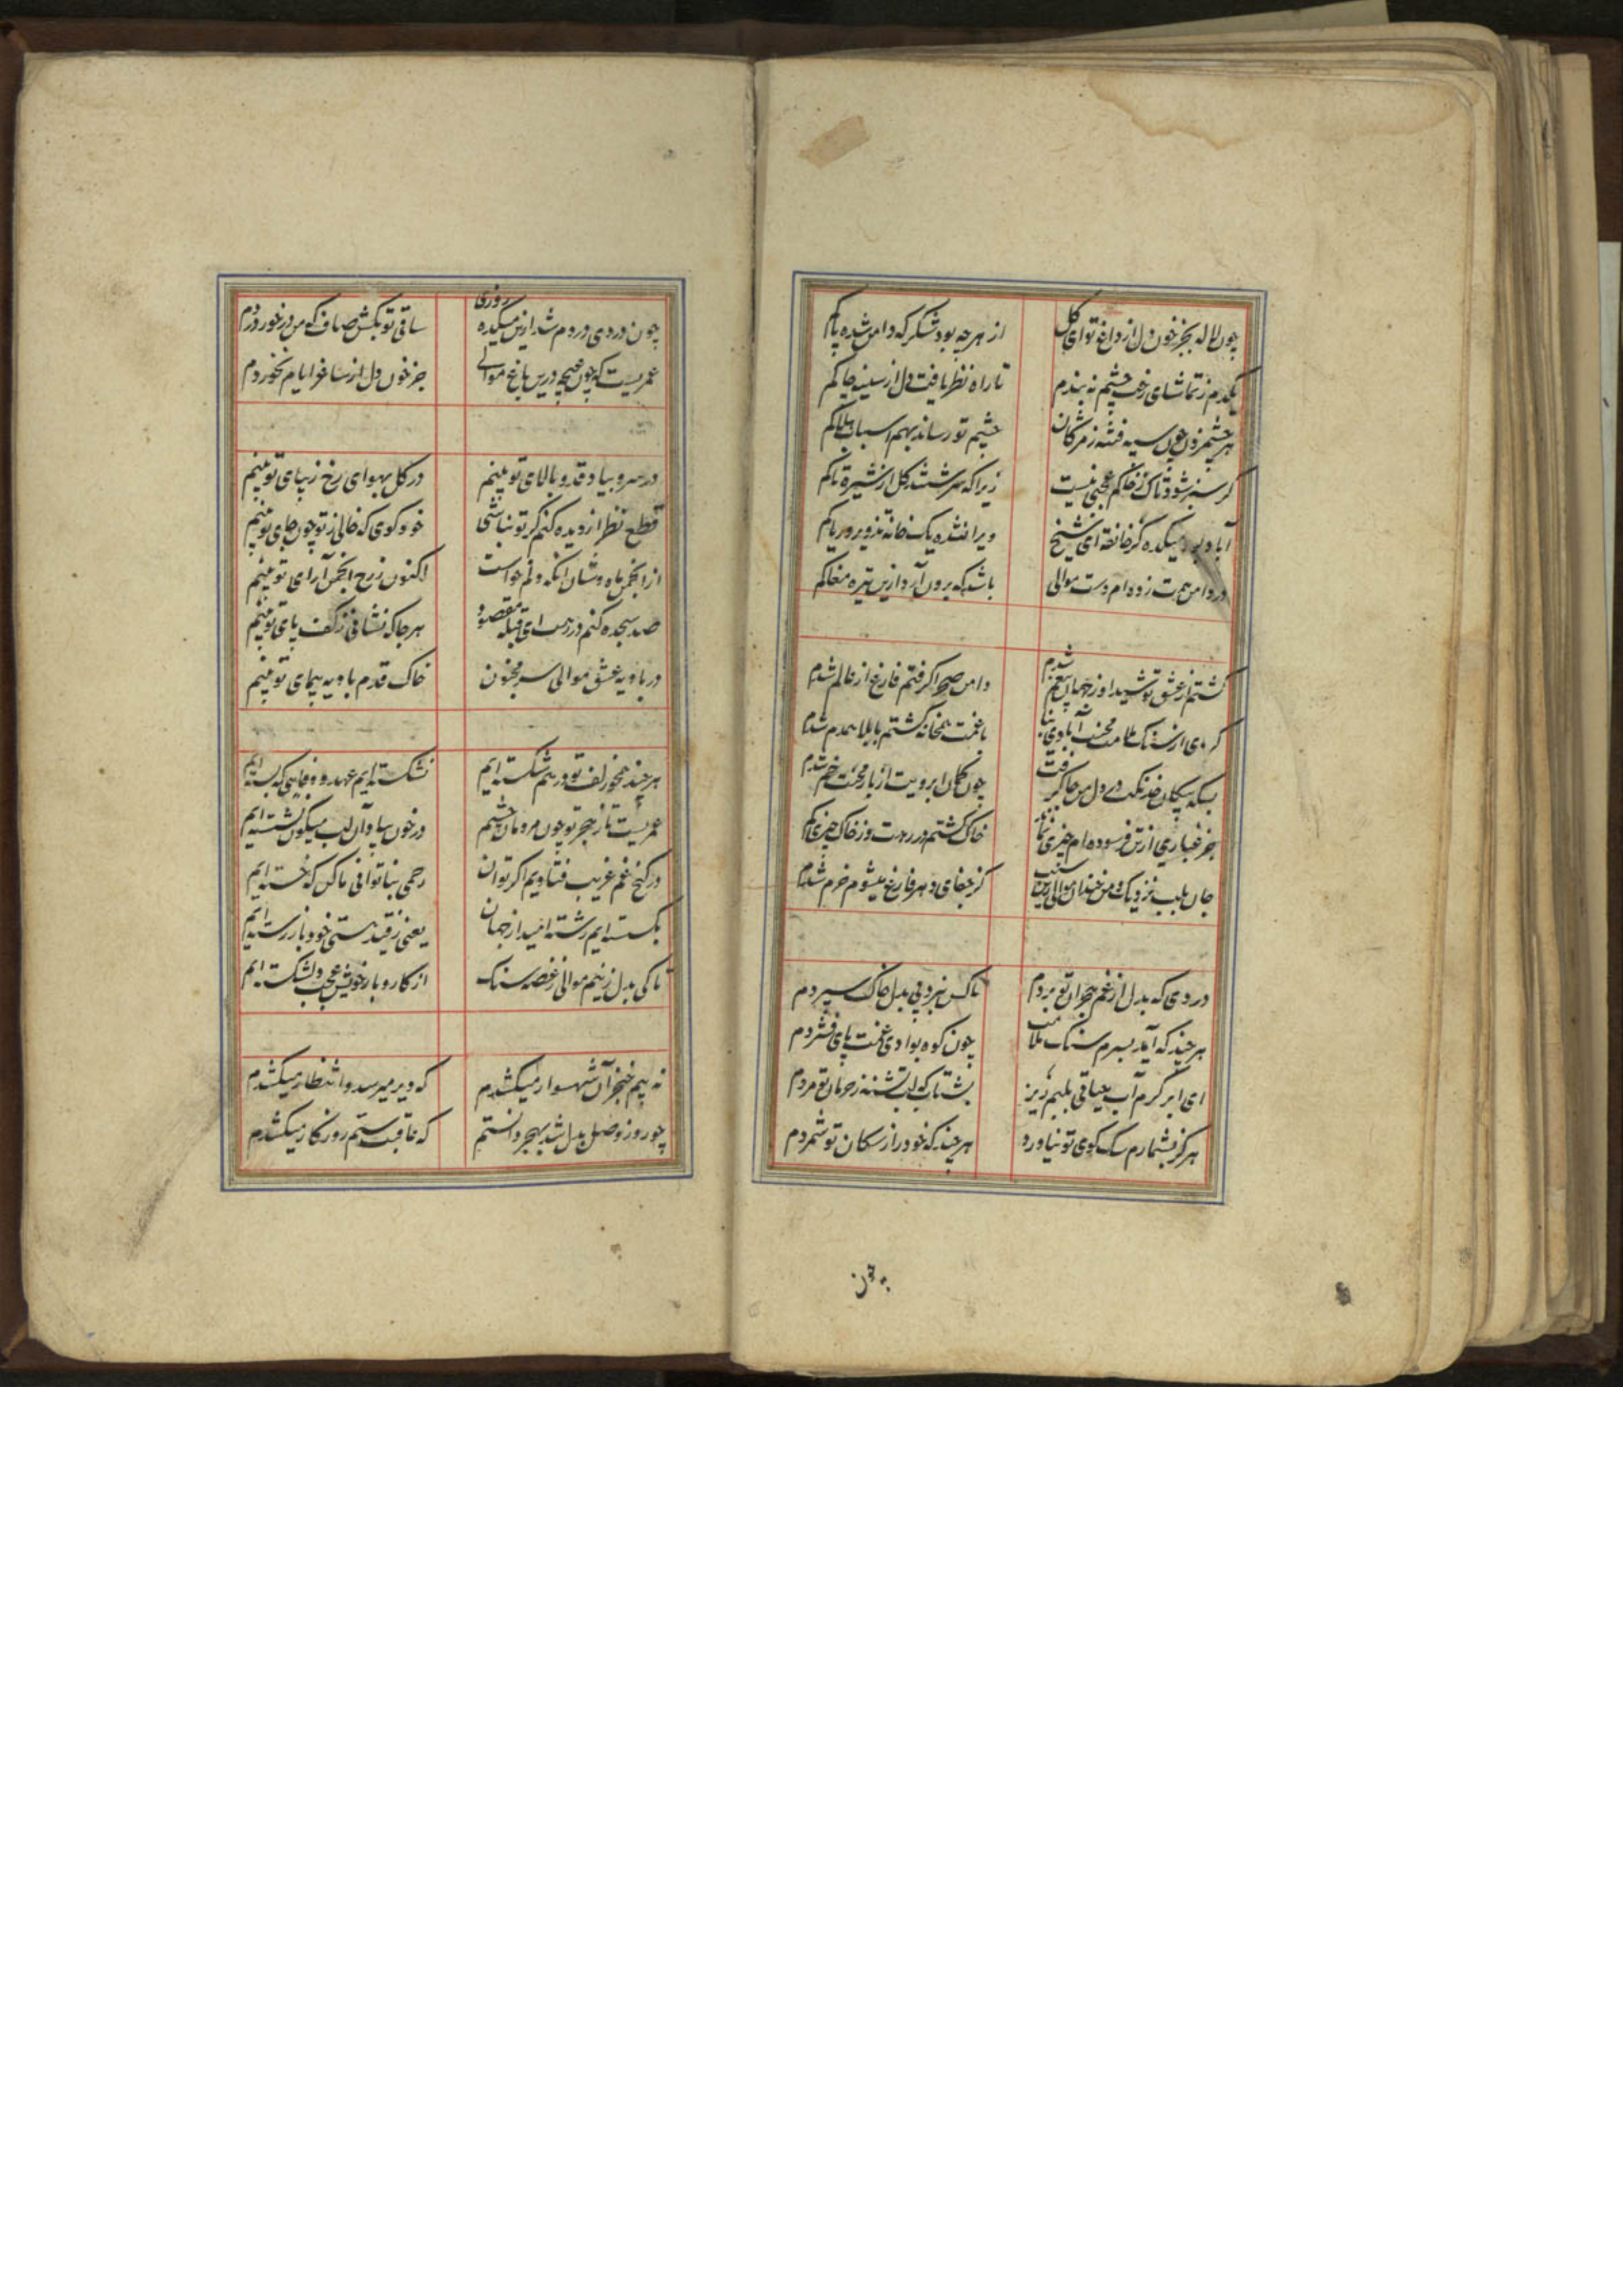 چون لاله بجز خون دل از داغ تو ای گل
از هر چه بود شکر که دامن شده پاکم
یکدم ز تماشای رخت چشم نه بندم
تا راه نظر یافت دل از سینه چاکم
هر چشم زدن چون سپه فتنه ز مژگان
چشم تو رساند بهم اسباب هلاکم
کر سبز شود تاک ز خاکم عجبی نیست
زیرا که سرشتند کل از شیره تاکم
آباد بود میکده کر خانقه ای شیخ
ویران شده یک خانه تزویر و ریا کم
در دامن همت زده ام دست موالی
باشد که برون آرد ازین تیره مغاکم
کشتم از عشق تو شیدا وز جهان بیغم شدم
دامن صحرا کرفتم فارغ از عالم شدم
کردی از سنک ملامت محنت آبادی بنا
با غمت همخانه کشتم با بلا همدم شدم
بسکه پیکان خدنکت در دل من جا کرفت
چون کمان ابرویت از بار محنت خم شدم
جز غباری از تن فرسوده ام چیزی نماند
خاک کشتم در رهت وز خاک چیزی کم شدم
جان بلب نزدیک و من خندان موالی زین سبب
کز جفای دهر فارغ میشوم خرم شدم
دردی که بدل از غم هجران تو بردم
تا کس نبرد پی بدل خاک سپردم
هر چند که آید بسرم سنک ملامت
چون کوه بوادی غمت پای فشردم
ای ابر کرم آب حیاتی بلبم ریز
بشتاب که لب تشنه ز حرمان تو مردم
هرکز بشمارم سک کوی تو نیاورد
هر چند که خود را ز سکان تو شمردم
چون
چون دردی دردم شد ازین میکده روزی
ساقی تو بکش صاف که من در خور دردم
عمریست که چون غنچه درین باغ موالی
جز خون دل از ساغر ایام نخوردم
در سرو بیاد قد و بالای تو بینم
در کل بهوای رخ زیبای تو بینم
قطع نظر از دیده کنم کر تو نباشی
خود کوی که خالی ز تو چون جای تو بینم
از انجمن ماه وشان آنکه دلم خواست
اکنون ز رخ انجمن آرای تو بینم
صد سجده کنم در رهت ای قبله مقصود
هر جا که نشانی ز کف پای تو بینم
در بادیه عشق موالی سر مجنون
خاک قدم بادیه پیمای تو بینم
هر چند همچو زلف تو در هم شکسته ایم
نشکسته ایم عهد و وفایی که بسته ایم
عمریست تا ز هجر تو چون مردمان چشم
در خون بیاد آن لب میکون نشسته ایم
در کنج غم غریب فتادیم اکر توان
رحمی بناتوانی ما کن که خسته ایم
بکسسته ایم رشته امید از جهان
یعنی ز قید هستی خود باز رسته ایم
تا کی بدل زنیم موالی ز غصه سنک
از کار و بار خویش عجب دلشکسته ایم
نه بیم خنجر آن شهسوار میکشدم
که دیر میرسد و انتظار میکشدم
چو روز وصل بدل شد بهجر دانستم
که عاقبت ستم روزکار میکشدم